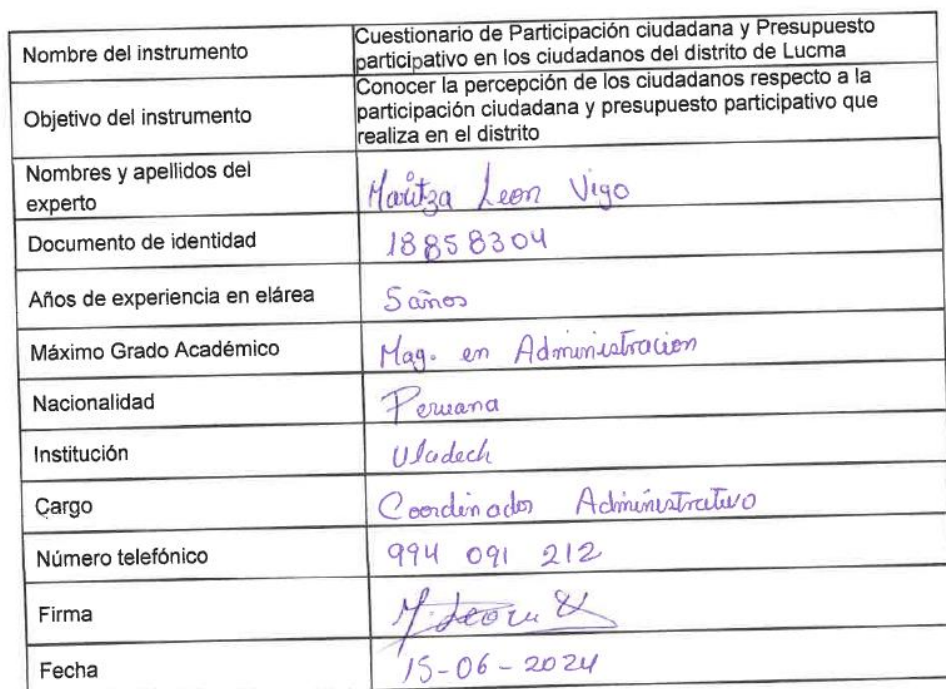 Nombre del instrumento
Cuestionario de Participación ciudadana y Presupuesto
participativo en los ciudadanos del distrito de Lucma
Objetivo del instrumento
Conocer la percepción de los ciudadanos respecto a la
participación ciudadana y presupuesto participativo que
realiza en el distrito
Nombres y apellidos del
experto
Maritza Leon Vigo
Documento de identidad
18858304
Años de experiencia en elárea
5 años
Máximo Grado Académico
Mag. en Administracion
Nacionalidad
Peruana
Institución
Uladech
Cargo
Coordinador Administrativo
Número telefónico
994 091 212
Firma
Fecha
15-06-2024